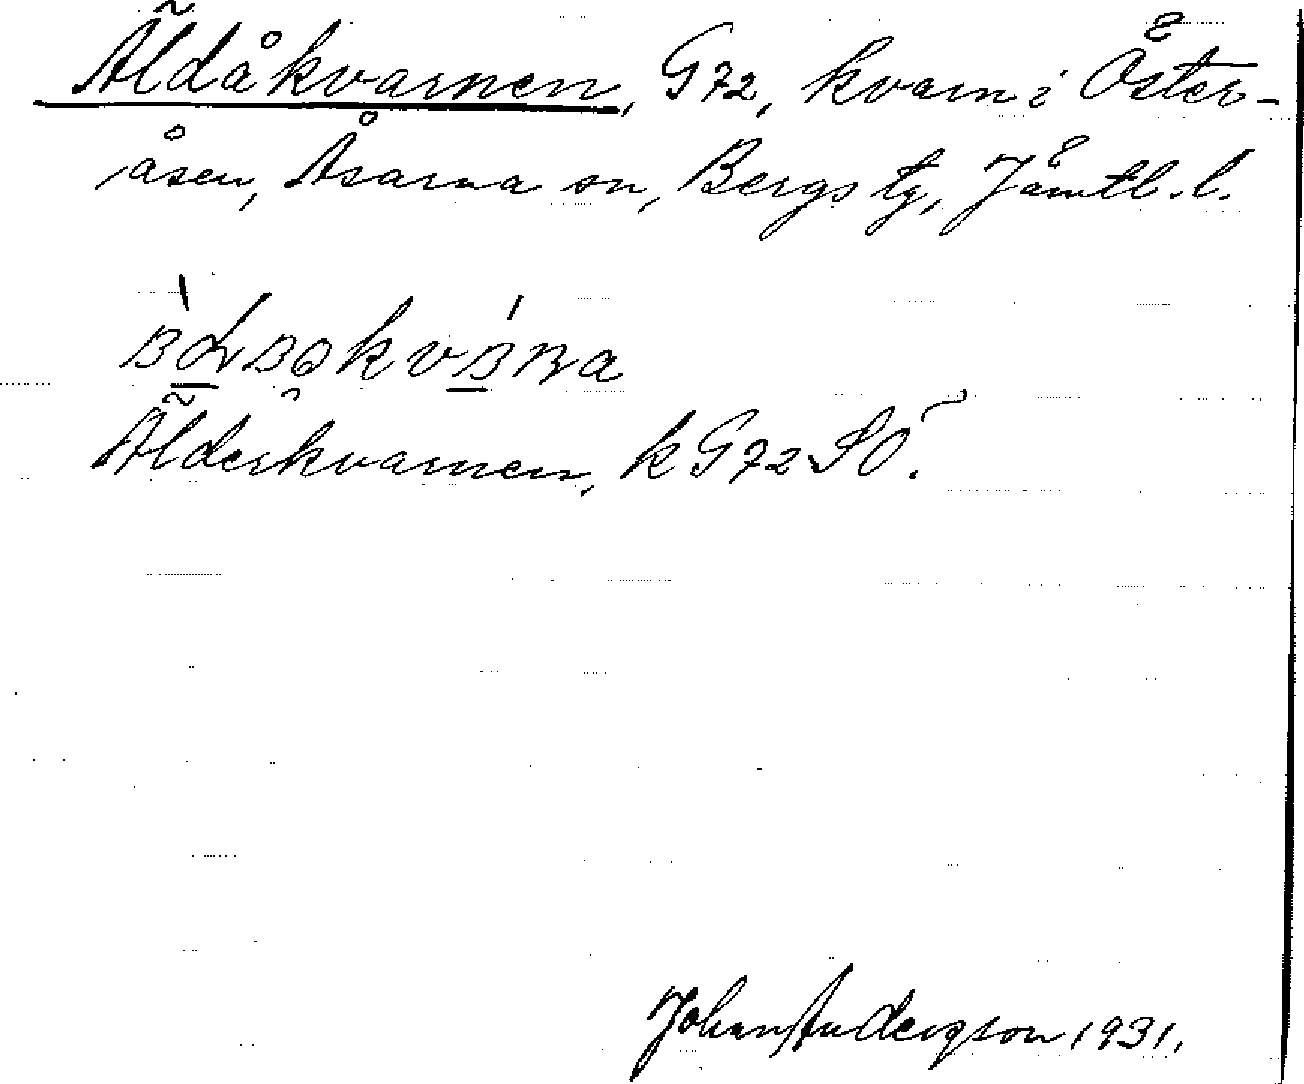 Äldåkvarnen, G72, kvarn i Öster-
åsen, Åsarna sn, Bergs tg, Jämtl. l.
Älderkvarnen, k G72 SÖ.
Johan Andersson 1931.